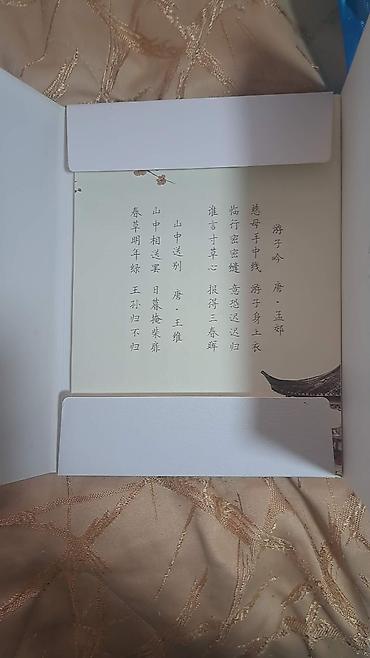 游子吟 唐·孟郊
慈母手中线 游子身上衣
临行密密缝 意恐迟迟归
谁言寸草心 报得三春晖
山中送别 唐·王维
山中相送罢 日暮掩柴扉
春草明年绿 王孙归不归